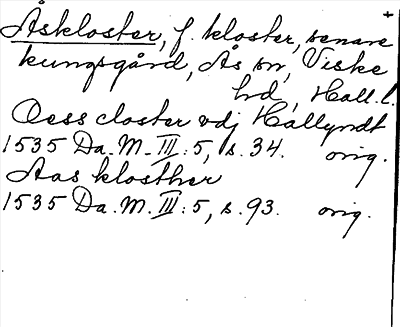 Åskloster, f. kloster, senare
kungsgård, Ås sn, Viske
hd, Hall. l.
Oess closter vdj Hallyndt
1535 Da. M. III: 5, s. 34. orig.
Aas klosther
1535 Da. M. III: 5, s. 93. orig.